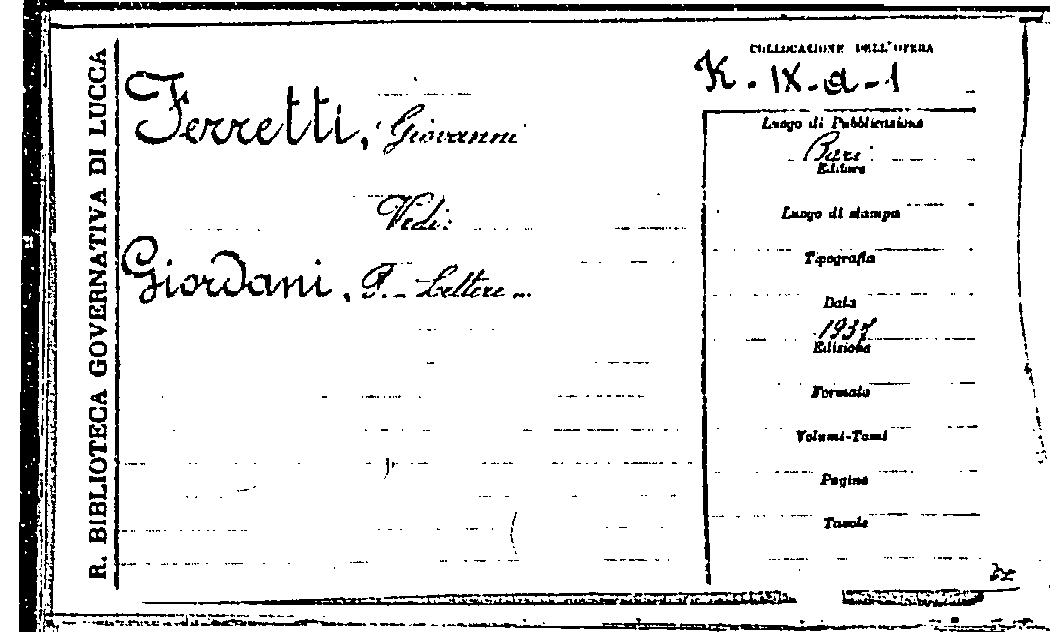 R. BIBLIOTECA GOVERNATIVA DI LUCCA
Ferretti, Giovanni
Vedi:
Giordani, P. - Lettere ...
COLLOCAZIONE DELL'OPERA
K. IX. a - 1
Luogo di Pubblicazione
Bari
Editore
Luogo di stampa
Tipografia
Data
1937
Edizione
Formato
Volumi-Tomi
Pagine
Tavole